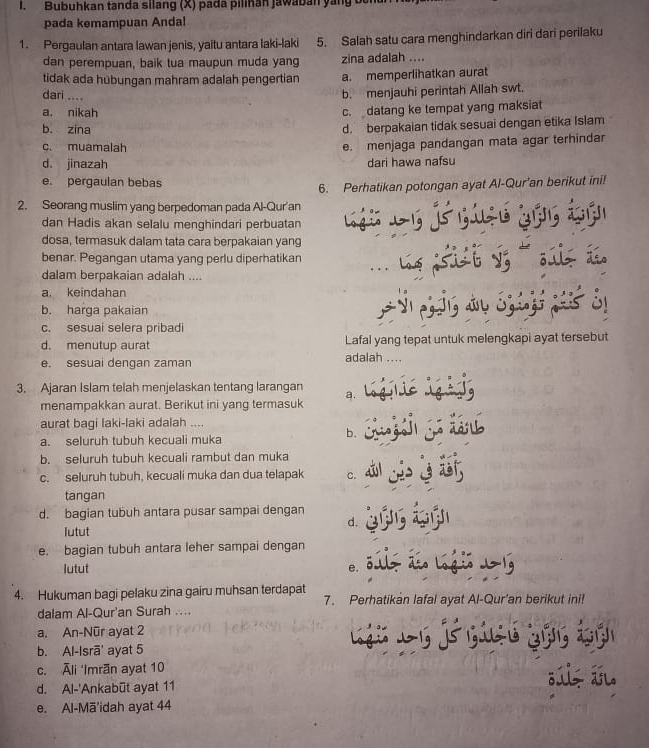 I. Bubuhkan tanda silang (X) pada pilihan jawaban yang
pada kemampuan Anda!
1. Pergaulan antara lawan jenis, yaitu antara laki-laki
dan perempuan, baik tua maupun muda yang
tidak ada hubungan mahram adalah pengertian
dari ....
a. nikah
b. zina
c. muamalah
d. jinazah
e. pergaulan bebas
2. Seorang muslim yang berpedoman pada Al-Qur'an
dan Hadis akan selalu menghindari perbuatan
dosa, termasuk dalam tata cara berpakaian yang
benar. Pegangan utama yang perlu diperhatikan
dalam berpakaian adalah ....
a. keindahan
b. harga pakaian
c. sesuai selera pribadi
d. menutup aurat
e. sesuai dengan zaman
3. Ajaran Islam telah menjelaskan tentang larangan
menampakkan aurat. Berikut ini yang termasuk
aurat bagi laki-laki adalah ....
a. seluruh tubuh kecuali muka
b. seluruh tubuh kecuali rambut dan muka
c. seluruh tubuh, kecuali muka dan dua telapak
tangan
d. bagian tubuh antara pusar sampai dengan
lutut
e. bagian tubuh antara leher sampai dengan
lutut
4. Hukuman bagi pelaku zina gairu muhsan terdapat
dalam Al-Qur'an Surah ....
a. An-Nūr ayat 2
b. Al-Isrā' ayat 5
c. Āli 'Imrān ayat 10
d. Al-'Ankabūt ayat 11
e. Al-Mā'idah ayat 44
5. Salah satu cara menghindarkan diri dari perilaku
zina adalah ....
a. memperlihatkan aurat
b. menjauhi perintah Allah swt.
c. datang ke tempat yang maksiat
d. berpakaian tidak sesuai dengan etika Islam
e. menjaga pandangan mata agar terhindar
dari hawa nafsu
6. Perhatikan potongan ayat Al-Qur'an berikut ini!
الزَّانِيَةُ وَالزَّانِيْ فَاجْلِدُوْا كُلَّ وَاحِدٍ مِّنْهُمَا
مِائَةَ جَلْدَةٍ ۖ وَّلَا تَأْخُذْكُمْ بِهِمَا ...
إِنْ كُنْتُمْ تُؤْمِنُوْنَ بِاللّٰهِ وَالْيَوْمِ الْاٰخِرِ
Lafal yang tepat untuk melengkapi ayat tersebut
adalah ....
a. وَلْيَشْهَدْ عَذَابَهُمَا
b. طَائِفَةٌ مِّنَ الْمُؤْمِنِيْنَ
c. رَأْفَةٌ فِيْ دِيْنِ اللّٰهِ
d. الزَّانِيَةُ وَالزَّانِيْ
e. وَاحِدٍ مِّنْهُمَا مِائَةَ جَلْدَةٍ
7. Perhatikan lafal ayat Al-Qur'an berikut ini!
الزَّانِيَةُ وَالزَّانِيْ فَاجْلِدُوْا كُلَّ وَاحِدٍ مِّنْهُمَا
مِائَةَ جَلْدَةٍ